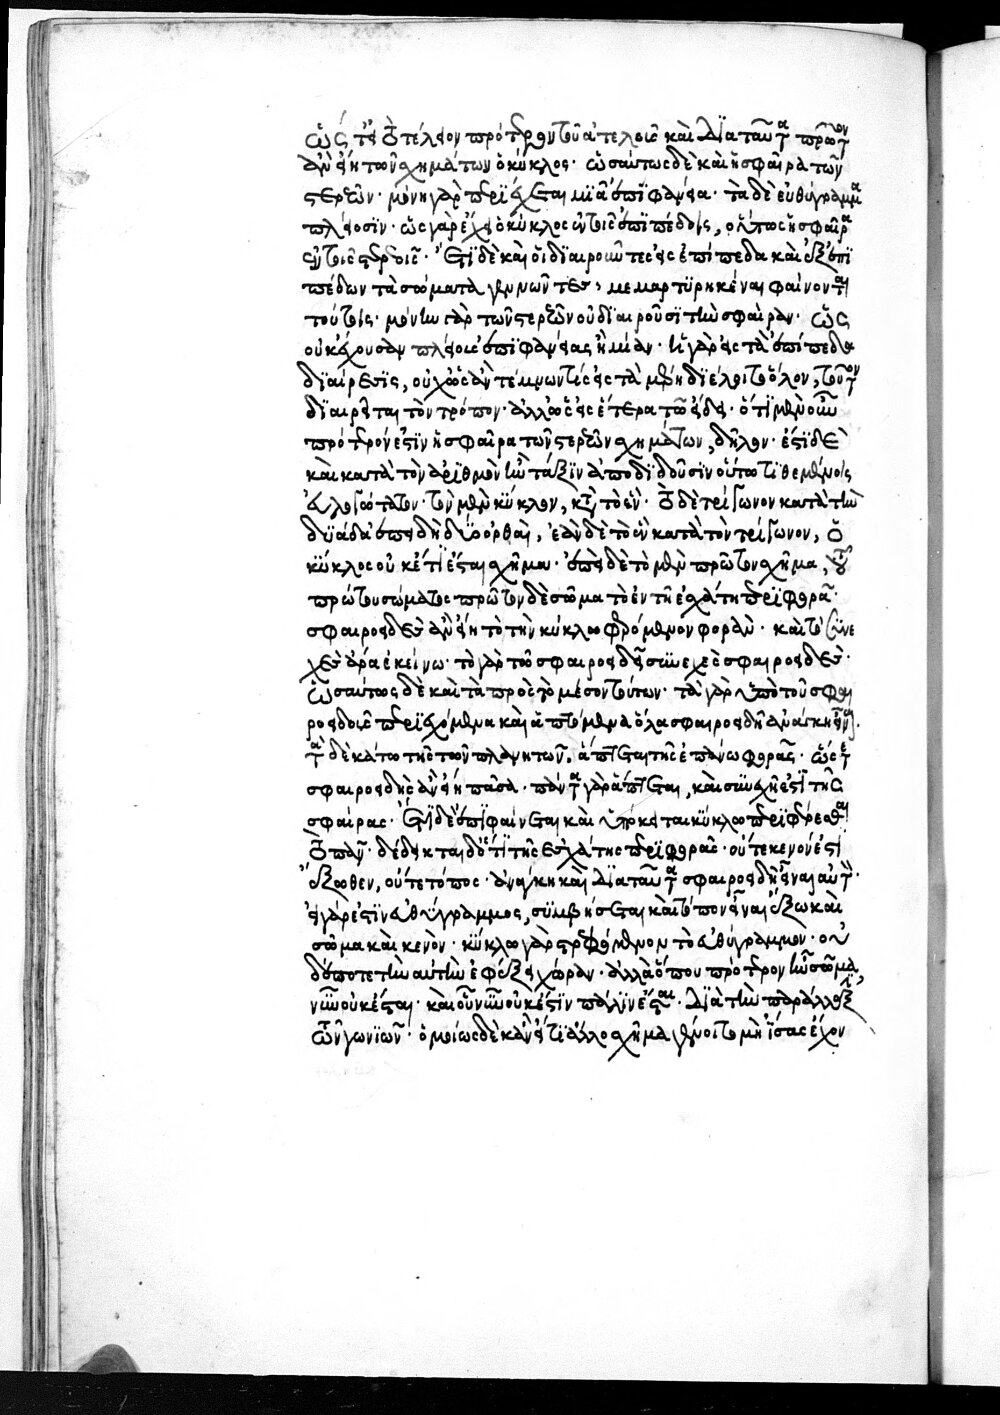 ὥς τε τὸ τέλειον πρότερον τοῦ ἀτελοῦς καὶ διὰ ταῦτα πρῶτον
ἂν εἴη τῶν σχημάτων ὁ κύκλος· ὡσαύτως δὲ καὶ ἡ σφαῖρα τῶν
στερεῶν· μόνη γὰρ περιέχεται μιᾷ ἐπιφανείᾳ· τὰ δὲ εὐθύγραμμα
πλείοσιν· ὡς γὰρ ἔχει ὁ κύκλος ἐν τοῖς ἐπιπέδοις, οὕτως ἡ σφαῖρα
ἐν τοῖς στερεοῖς· ἔτι δὲ καὶ οἱ διαιροῦντες εἰς ἐπίπεδα καὶ ἐξ ἐπι
πέδων τὰ σώματα γεννῶντες, μεμαρτυρηκέναι φαίνονται
τούτοις· μόνην γὰρ τῶν στερεῶν οὐ διαιροῦσι τὴν σφαῖραν· ὡς
οὐκ ἔχουσαν πλείους ἐπιφανείας ἢ μίαν· ἡ γὰρ εἰς τὰ ἐπίπεδα
διαίρεσις, οὐχ ὡς ἂν τέμνων τις εἰς τὰ μέρη διέλοι τὸ ὅλον, τοῦτον
διαιρεῖται τὸν τρόπον· ἀλλ' ὡς εἰς ἕτερα τῷ εἴδει· ὅτι μὲν οὖν
πρότερόν ἐστιν ἡ σφαῖρα τῶν στερεῶν σχημάτων, δῆλον· ἔστι δὲ
καὶ κατὰ τὸν ἀριθμὸν τὴν τάξιν ἀποδιδοῦσιν οὕτω τιθεμένοις
εὐλογώτατον· τὸν μὲν κύκλον, κατὰ τὸ ἕν· τὸ δὲ τρίγωνον κατὰ τὴν
δυάδα ἐπειδὴ δύο ὀρθαί, ἐὰν δὲ τὸ ἓν κατὰ τὸν τρίγωνον, ὁ
κύκλος οὐκέτι ἔσται σχῆμα· ἐπεὶ δὲ τὸ μὲν πρῶτον σχῆμα, τοῦ
πρώτου σώματος πρῶτον δὲ σῶμα τὸ ἐν τῇ ἐσχάτῃ περιφορᾷ·
σφαιροειδὲς ἂν εἴη τὸ τὴν κύκλῳ φερόμενον φοράν· καὶ τὸ συνε
χὲς ἄρα ἐκείνῳ· τὸ γὰρ τῷ σφαιροειδεῖ συνεχὲς σφαιροειδές·
ὡσαύτως δὲ καὶ τὰ πρὸς τὸ μέσον τούτων· τὰ γὰρ ὑπὸ τοῦ σφαι
ροειδοῦς περιεχόμενα καὶ ἁπτόμενα ὅλα σφαιροειδῆ ἀνάγκη εἶναι·
τὰ δὲ κάτω τῆς τῶν πλανητῶν, ἅπτεται τῆς ἐπάνω φορᾶς· ὥστε
σφαιροειδὴς ἂν εἴη πᾶσα· πάντα γὰρ ἅπτεται, καὶ συνεχῆ ἐστι τῆς
σφαίρας· ἔτι δὲ ἐπεὶ φαίνεται καὶ ὑπόκειται κύκλῳ περιφέρεσθαι
τὸ πᾶν· δέδεικται δ' ὅτι τῆς ἐσχάτης περιφορᾶς· οὔτε κενόν ἐστι
ἔξωθεν, οὔτε τόπος· ἀνάγκη καὶ διὰ ταῦτα σφαιροειδῆ εἶναι αὐτήν·
εἰ γάρ ἐστιν εὐθύγραμμος, συμβήσεται καὶ τόπον εἶναι ἔξω καὶ
σῶμα καὶ κενόν· κύκλῳ γὰρ στρεφόμενον τὸ εὐθύγραμμον· οὐ
δέποτε τὴν αὐτὴν ἐφέξει χώραν· ἀλλ' ὅπου πρότερον ἦν σῶμα,
νῦν οὐκ ἔσται· καὶ οὗ νῦν οὐκ ἔστιν πάλιν ἔσται· διὰ τὴν παράλλαξιν
τῶν γωνιῶν· ὁμοίως δὲ κἂν εἴ τι ἄλλο σχῆμα γένοιτο μὴ ἴσας ἔχον